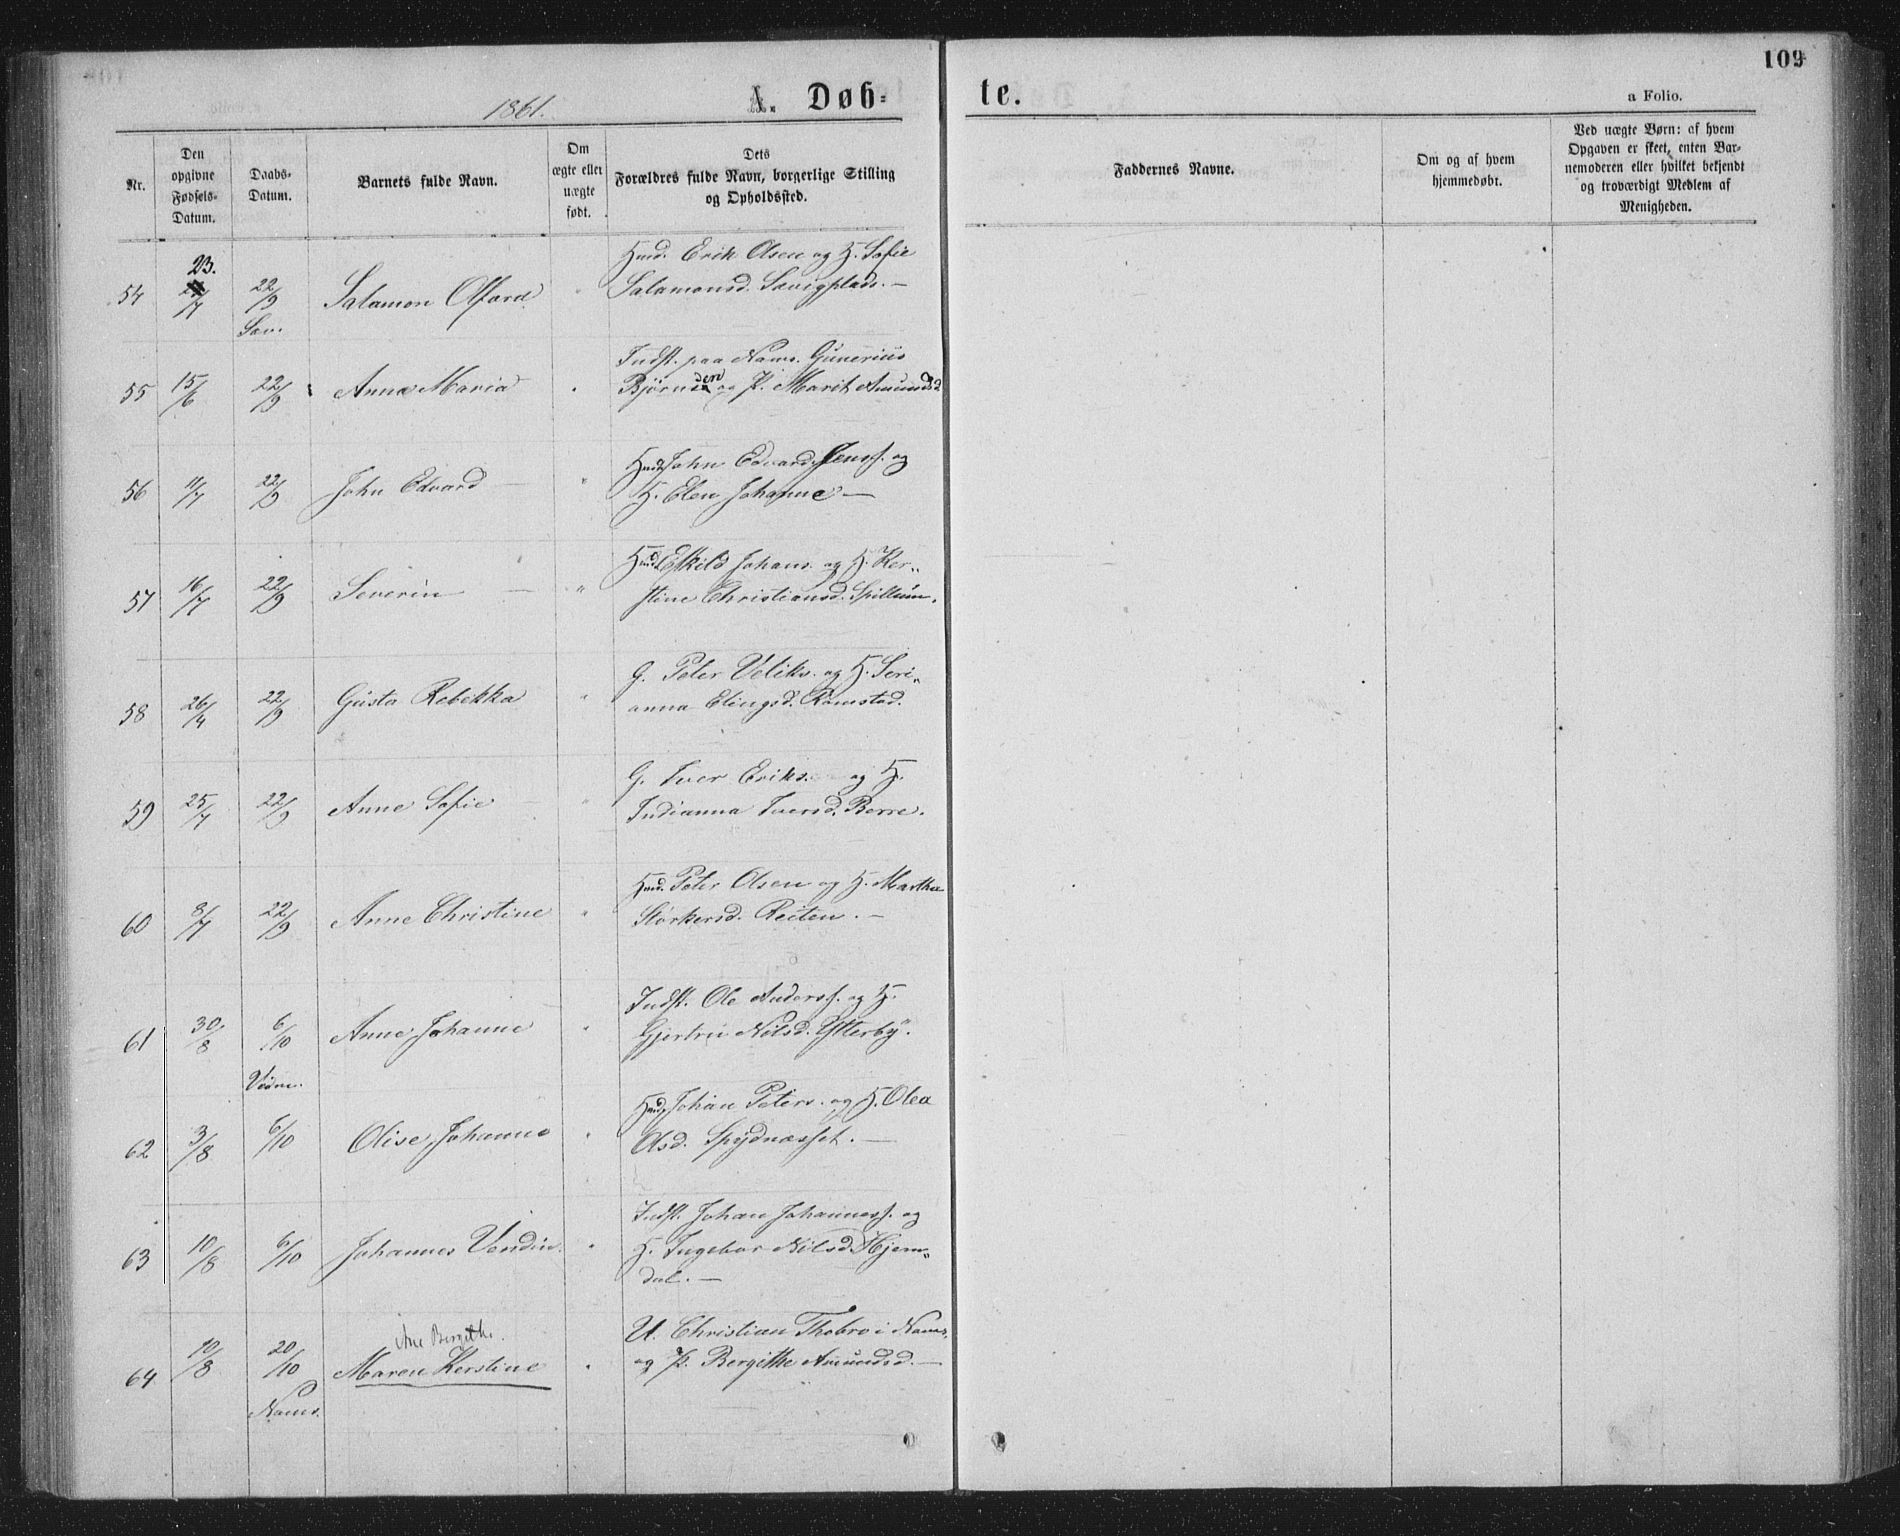 109
1861.
A. Døb=
te.
a Folio.
Nr.
Den opgivne Fødsels-Datum.
Daabs-Datum.
Barnets fulde Navn.
Om ægte eller uægte født.
Dets Forældres fulde Navn, borgerlige Stilling og Opholdssted.
Faddernes Navne.
Om og af hvem hjemmedøbt.
Ved uægte Børn: af hvem Opgaven er skeet, enten Barnemoderen eller hvilket bekjendt og troværdigt Medlem af Menigheden.
54 23./7 22/9 Salamon Olfard Hmd. Erik Olsen og H. Sofie
Sav. Salamonsd. Savigplads. —
55 15/6 22/9 Anna Maria Indst. paa Nams. Gunerius
Bjørnsen og P. Marit Amundsd
56 11/7 22/9 John Edvard — " Hmd. John Edvard Jenss. og
H. Elen Johanne —
57 16/7 22/9 Severin — " Hmd. Eskild Johans. og H. Ker-
stine Christiansd. Spillum.
58 26/4 22/9 Gusta Rebekka " G. Peter Veliks. og H. Seri-
anna Elingsd. Ramstad.
59 25/7 22/9 Anne Sofie " G. Iver Eriks. og H.
Indianna Iversd. Berre.
60 8/7 22/9 Anne Christine " Hmd. Peter Olsen og H. Martha
Størkersd. Reiten. —
61 30/8 6/10 Anne Johanne " Indst. Ole Anderss. og H.
Gjertru Nilsd. Ytterby.
62 3/8 6/10 Olise Johanne " Hmd. Johan Peters. og H. Olea
Olsd. Spydnæsset. —
63 10/8 6/10 Johannes Vendin " Indst. Johan Johanness. og
H. Ingebor Nilsd. Hjem-
dal. —
Ane Bergithe.
64 10/8 20/10 Maren Kerstine " U. Christian Thobro i Nams.
Nams. og P. Bergitte Amundsd. —